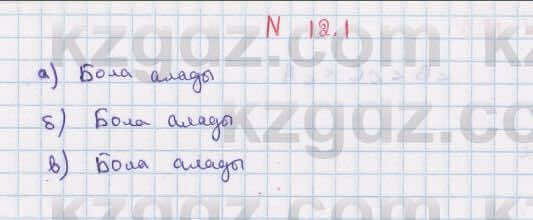 N 12.1
а) Бола алады
б) Бола алады
в) Бола алады
kzgdz.com
kzgdz.com